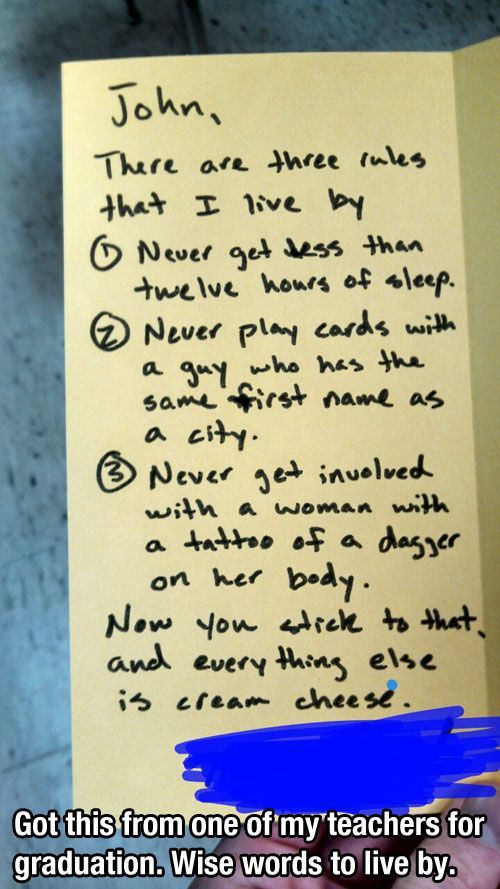 John,
There are three rules
that I live by
① Never get less than
twelve hours of sleep.
② Never play cards with
a guy who has the
same first name as
a city.
③ Never get involved
with a woman with
a tattoo of a dagger
on her body.
Now you stick to that,
and everything else
is cream cheese.
Got this from one of my teachers for
graduation. Wise words to live by.